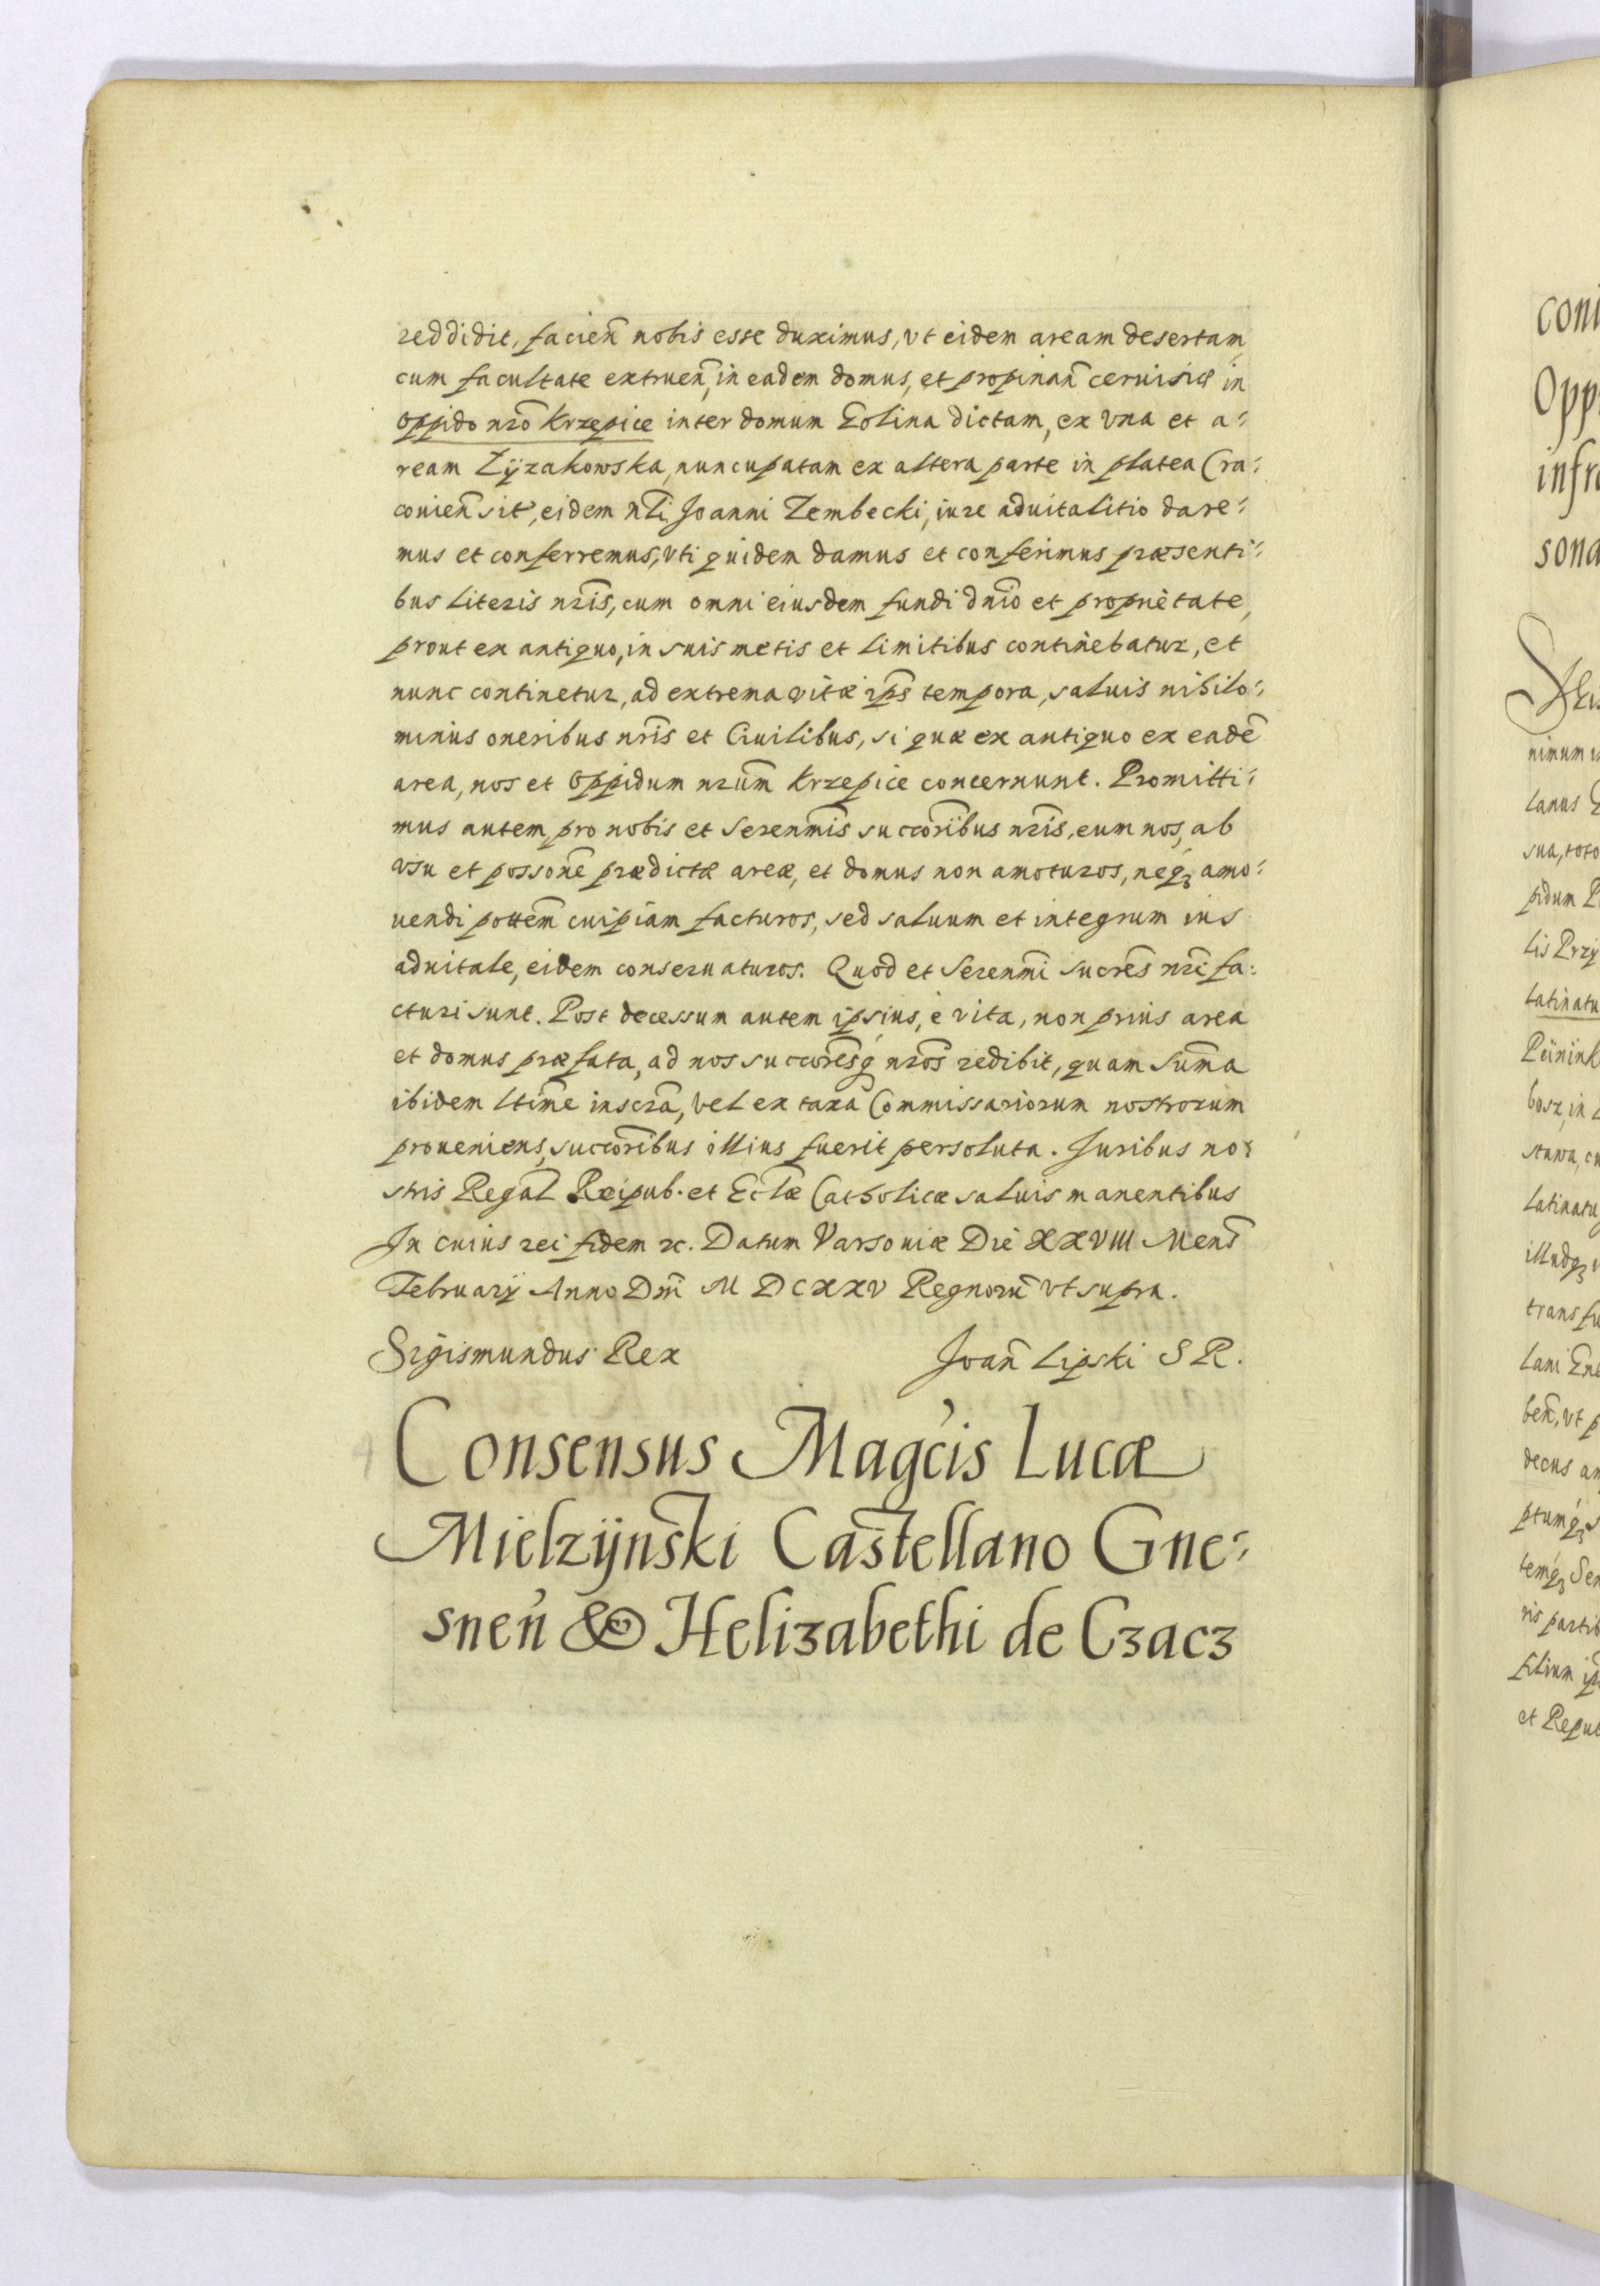 reddidit, facien̄ nobis esse duximus, vt eidem aream desertam
cum facultate extruen̄, in eadem domus, et propinan̄ ceruisiæ in
oppido nr̄o Krzepice inter domum Golina dictam, ex vna et a⸗
ream Zÿzakowska, nuncupatam ex altera parte in platea Cra⸗
couien̄ sit̄, eidem nl̄i Joanni Zembecki, iure aduitalitio dare⸗
mus et conferremus, vti quidem damus et conferimus præsenti⸗
bus literis nr̄is, cum omni eiusdem fundi dn̄io et proprietate,
prout ex antiquo, in suis metis et limitibus continebatur, et
nunc continetur, ad extrema vitæ ip̄s tempora, saluis nihilo⸗
minus oneribus nr̄is et Ciuilibus, si quæ ex antiquo ex eadē
area, nos et oppidum nr̄um Krzepice concernunt. Promitti⸗
mus autem, pro nobis et Seren̄mis succōribus nr̄is, eum nos, ab
vsu et possonē prædictæ areæ, et domus non amoturos, neqꝫ amo⸗
uendi potte̅m cuipiam facturos, sed saluum et integrum ius
aduitale, eidem conseruaturos. Quod et Seren̄mi sucrēs nr̄i fa⸗
cturi sunt. Post decessum autem ipsius, è vita, non prius area
et domus præfata, ad nos succorēsq́ nr̄os redibit, quam sum̄a
ibidem ltimē inscrā, vel ex taxa Commissariorum nostrorum
proueniens, succōribus illius fuerit persoluta. Juribus no⸗
stris Regal̄ Reipub. et Ecl̄æ Catholicæ saluis manentibus
In cuius rei fidem ꝛc. Datum Varsouiæ Die XXVIII Mens̄
Februarÿ Anno Dn̄i M DCXXV Regnorū vt supra.
Sigismundus Rex Joan̄ Lipski S R.
Consensus Magcis Lucæ
Mielzÿnski Castellano Gne⸗
snen̄ & Helizabethi de Czacz
coni
Opp
infr
sona
nimum
lanus
sua, toto
pidum
lis Przy
latinatu
latinatu
illudqꝫ
transfu
lani
ben̄, vt p
decus
ptumqꝫ
temqꝫ Ser
ris partib
filium
et Repub